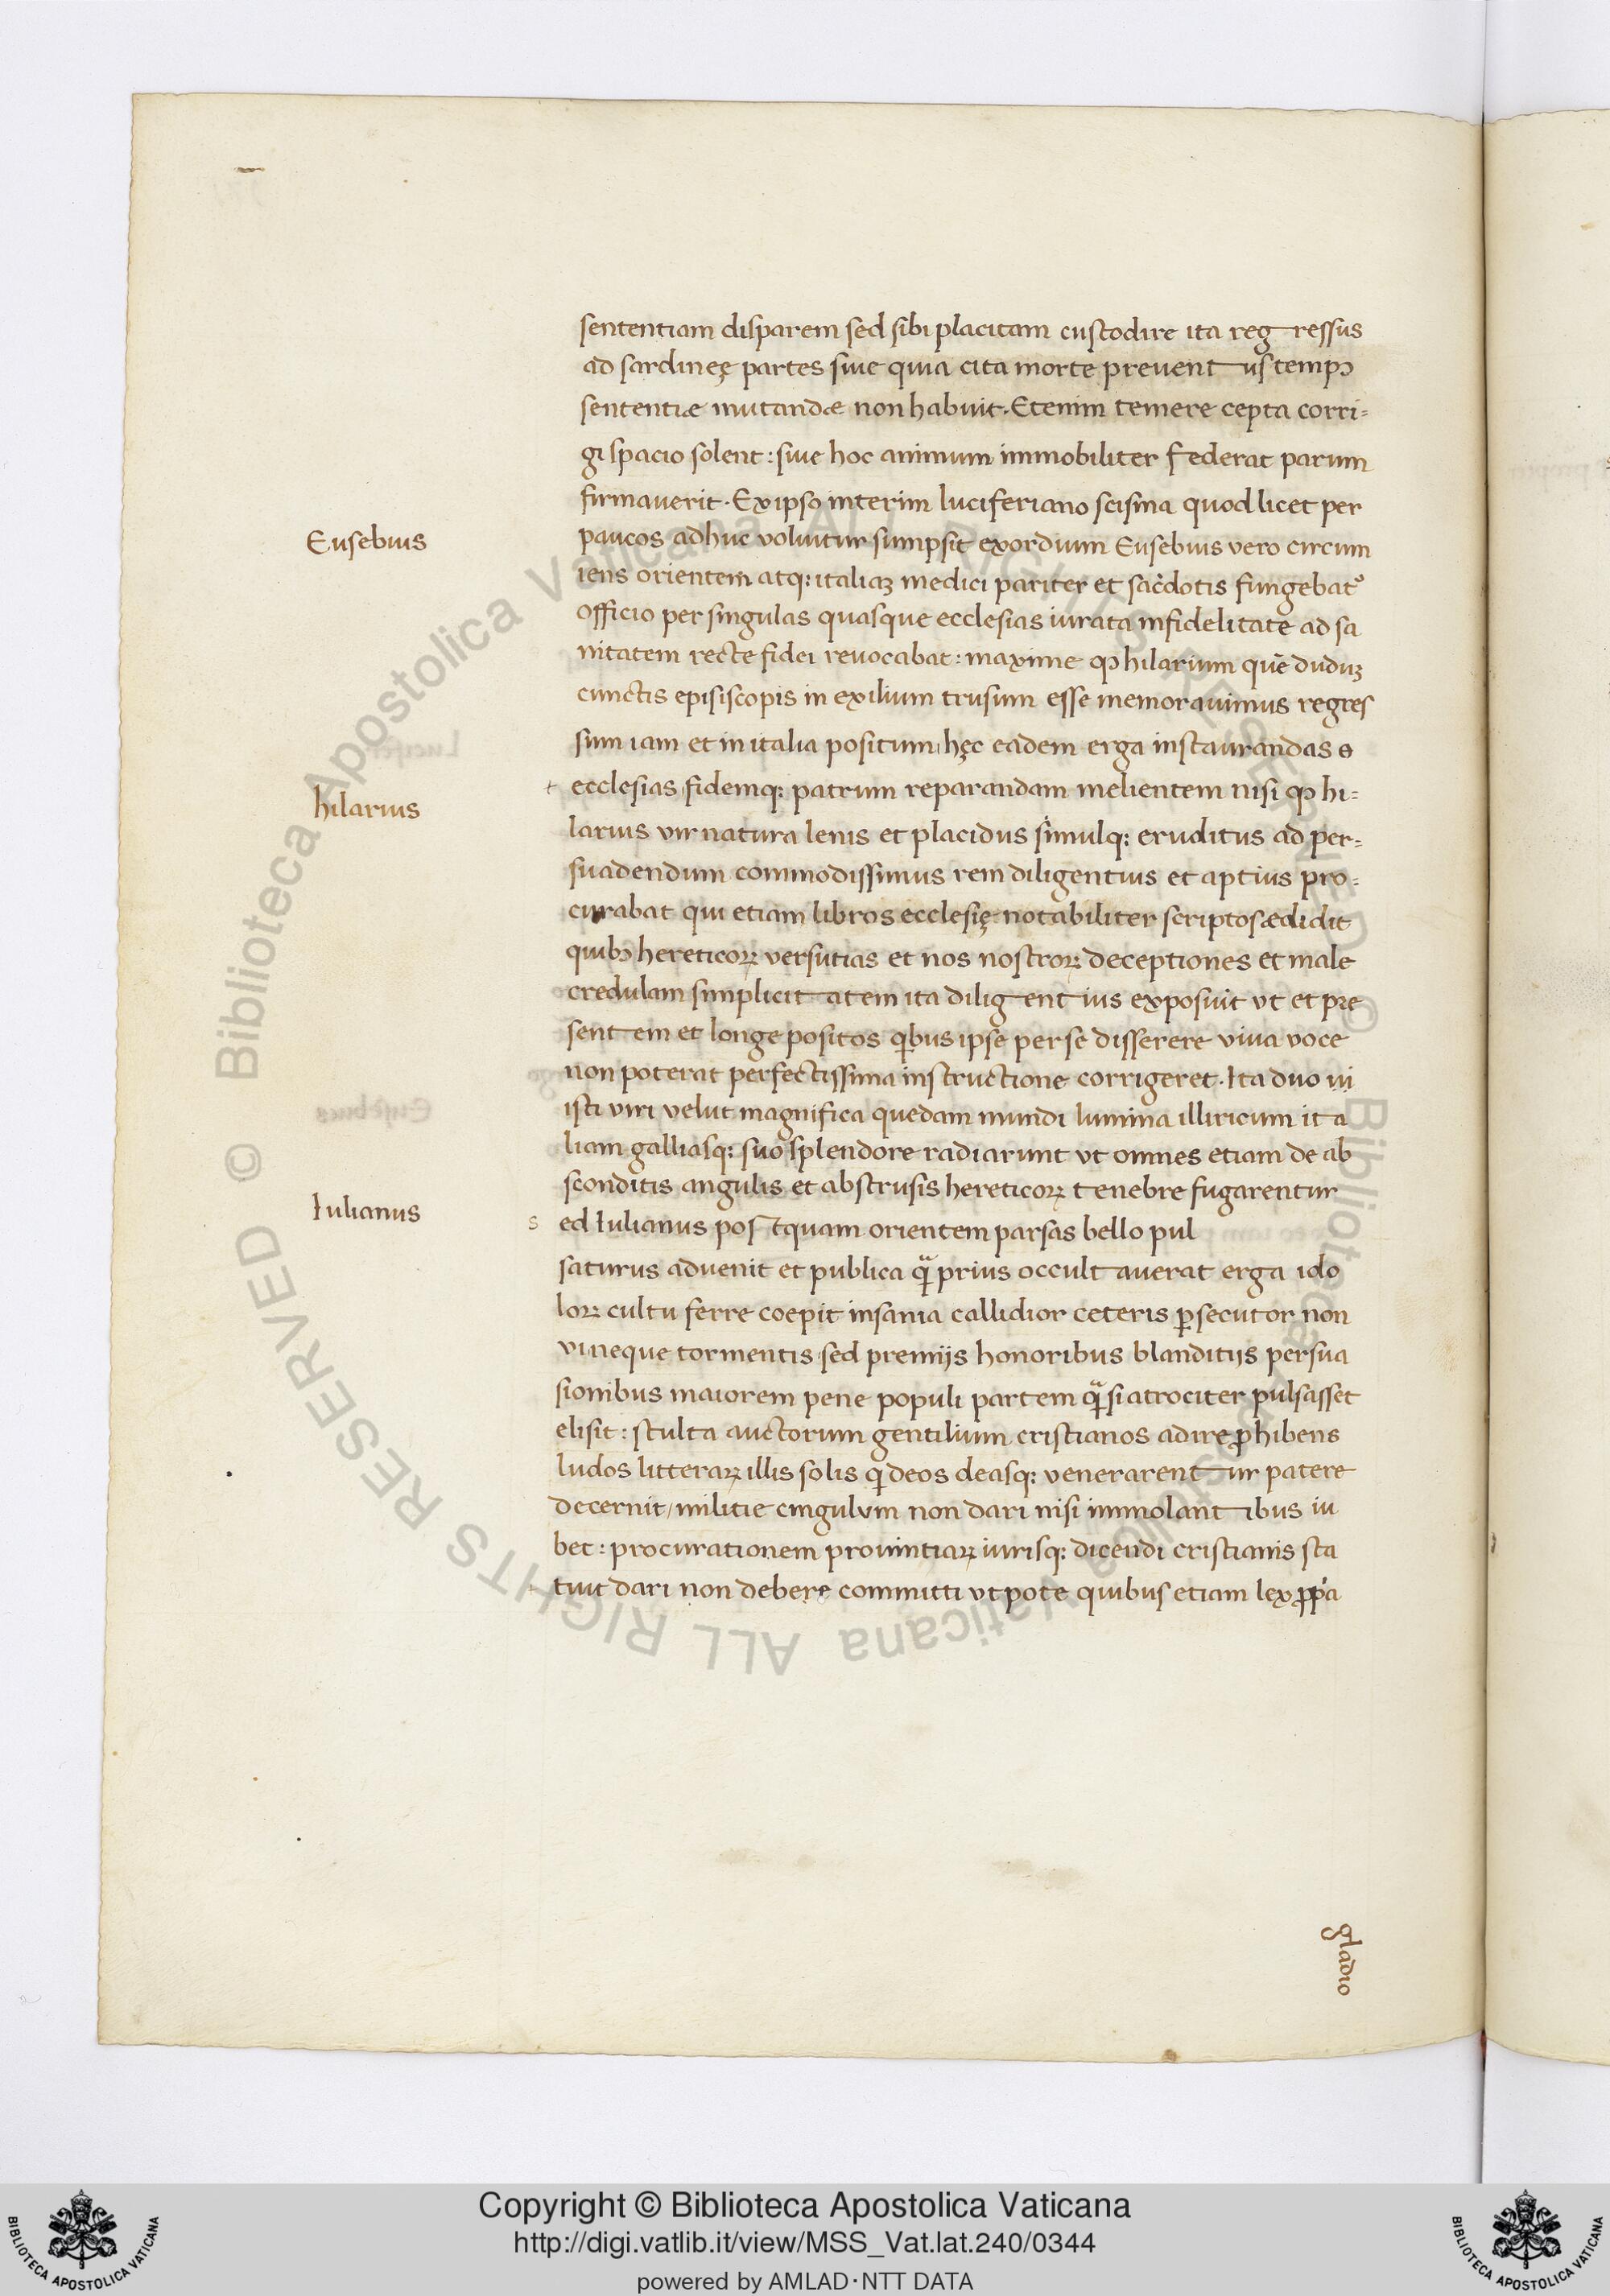 sententiam disparem sed sibi placitam custodire ita regressus
ad sardineę partes siue quia cita morte preuentus tempꝰ
sententiæ mutandæ non habuit. Etenim temere cepta corri=
gi spacio solent: siue hoc animum immobiliter federat parum
firmauerit. Ex ipso interim luciferiano scisma quod licet per
Eusebius
paucos adhuc voluitur sumpsit exordium Eusebius vero circum
iens orientem atq: italiaʒ medici pariter et sac̄dotis fungebat᾿
officio per singulas quasque ecclesias iurata infidelitate ad sa
nitatem recte fidei reuocabat: maxime ꝙ hilarium quē duduʒ
cunctis episiscopis in exilium trusum esse memorauimus regres
sum iam et in italia positum hęc eadem erga instaurandas
hilarius
ecclesias fidemq: patrum reparandam melientem nisi ꝙ hi=
larius vir natura lenis et placidus simulq: eruditus ad per=
suadendum commodissimus rem diligentius et aptius pro=
curabat qui etiam libros ecclesię notabiliter scriptos ædidit
quibꝰ hereticoꝝ versutias et nos nostroꝝ deceptiones et male
credulam simplicitatem ita diligentius exposuit vt et pre
sentem et longe positos qͥbus ipse per se disserere viua voce
non poterat perfectissima instructione corrigeret. Ita duo ui
isti viri velut magnifica quedam mundi lumina illiricum ita
liam galliasq: suo splendore radiarunt vt omnes etiam de ab
sconditis angulis et abstrusis hereticoꝝ tenebre fugarentur
Iulianus
s ed Iulianus postquam orientem parsas bello pul
saturus aduenit et publica qͣ̄ prius occultauerat erga ido
loꝝ cultu ferre coepit insania callidior ceteris ꝑsecutor non
vi neque tormentis sed premijs honoribus blanditijs persua
sionibus maiorem pene populi partem qͣ̄ si atrociter pulsasset
elisit: stulta auctorum gentilium cristianos adire ꝓhibens
ludos litteraꝝ illis solis qͥ deos deasq: venerarentur patere
decernit/ militie cingulum non dari nisi immolantibus iu
bet: procurationem prouintiaꝝ iurisq: dicendi cristianis sta
tuit dari non debere committi vt pote quibus etiam lex ꝓpͥa
gladio
Copyright © Biblioteca Apostolica Vaticana
http://digi.vatlib.it/view/MSS_Vat.lat.240/0344
powered by AMLAD·NTT DATA